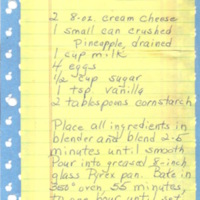 2 8-oz. cream cheese
1 small can crushed
Pineapple, drained
1 cup milk
4 eggs
1/2 cup sugar
1 tsp. vanilla
2 tablespoons cornstarch
Place all ingredients in
blender and blend 2-
minutes until smooth
Pour into greased 8-inch
glass Pyrex pan. Bake in
350° oven, 55 minutes,
to one hour until set